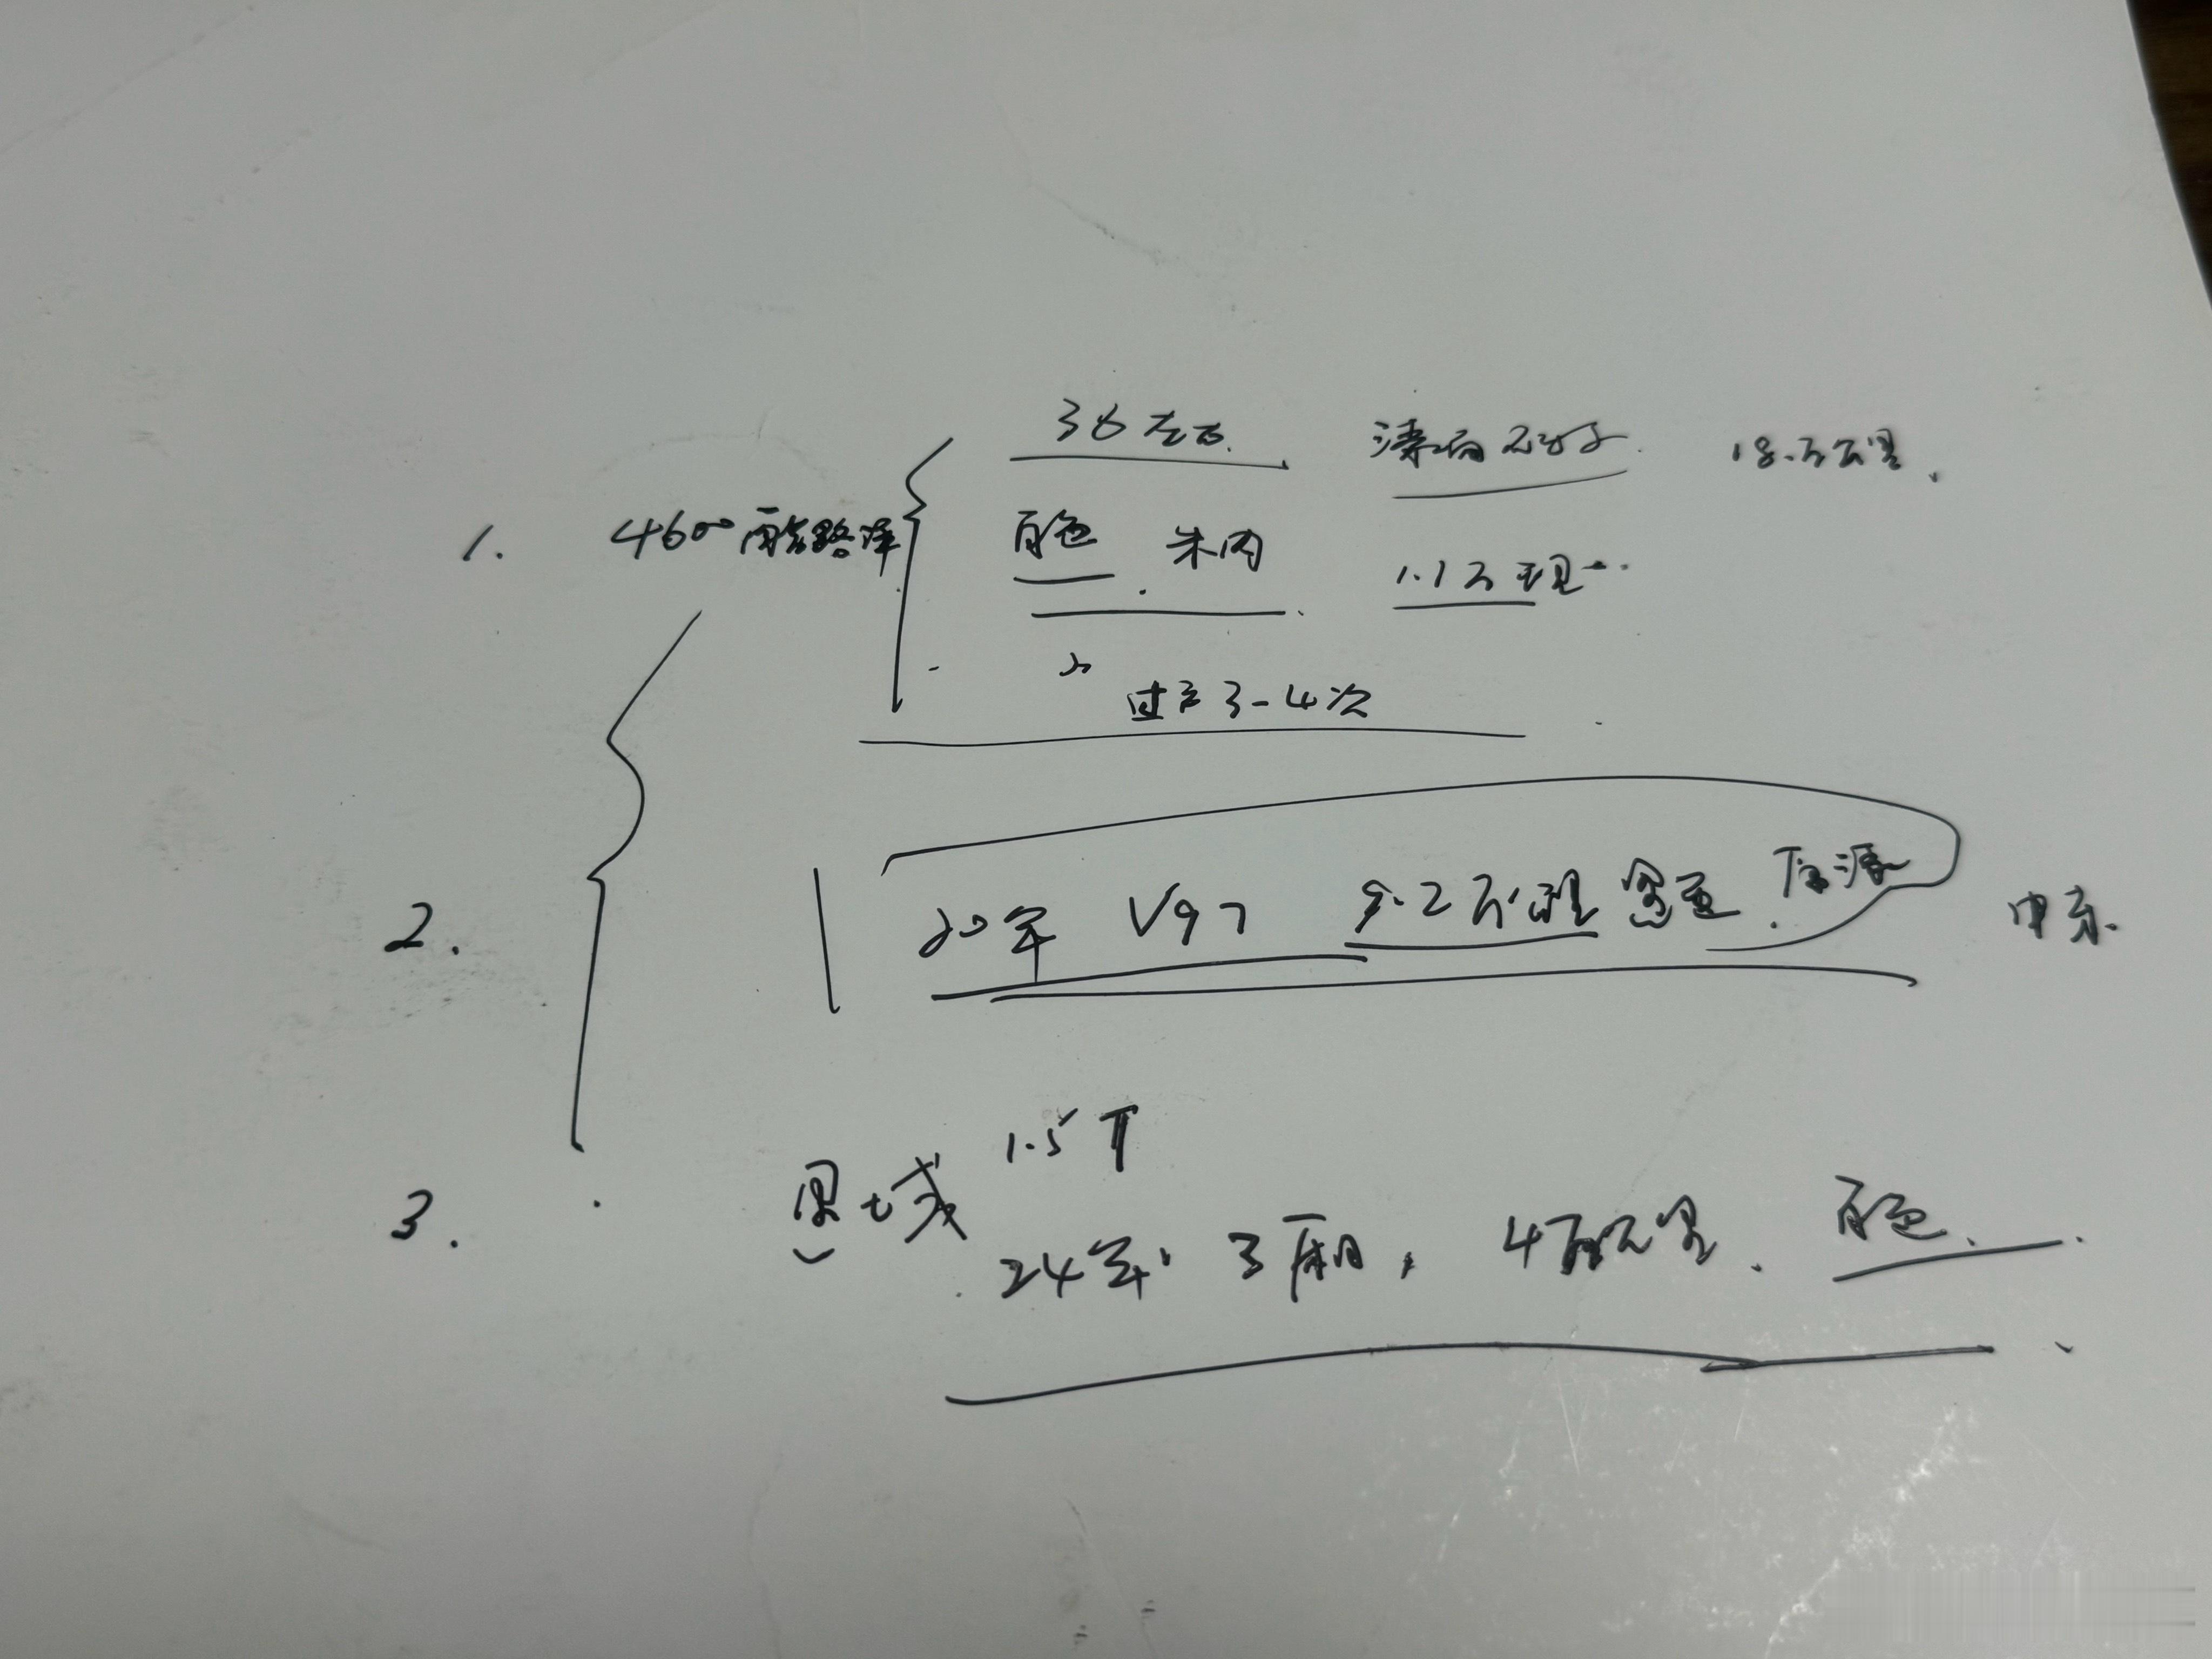 36左右. 漆面不好. 18.万公里.
1. 4600酷路泽
白色. 米内 1.1万
过户3-4次
2. 20年 V97 9.2万公里 黑色.
1.5T
3. 思域
24年, 3厢, 4万公里. 白色.